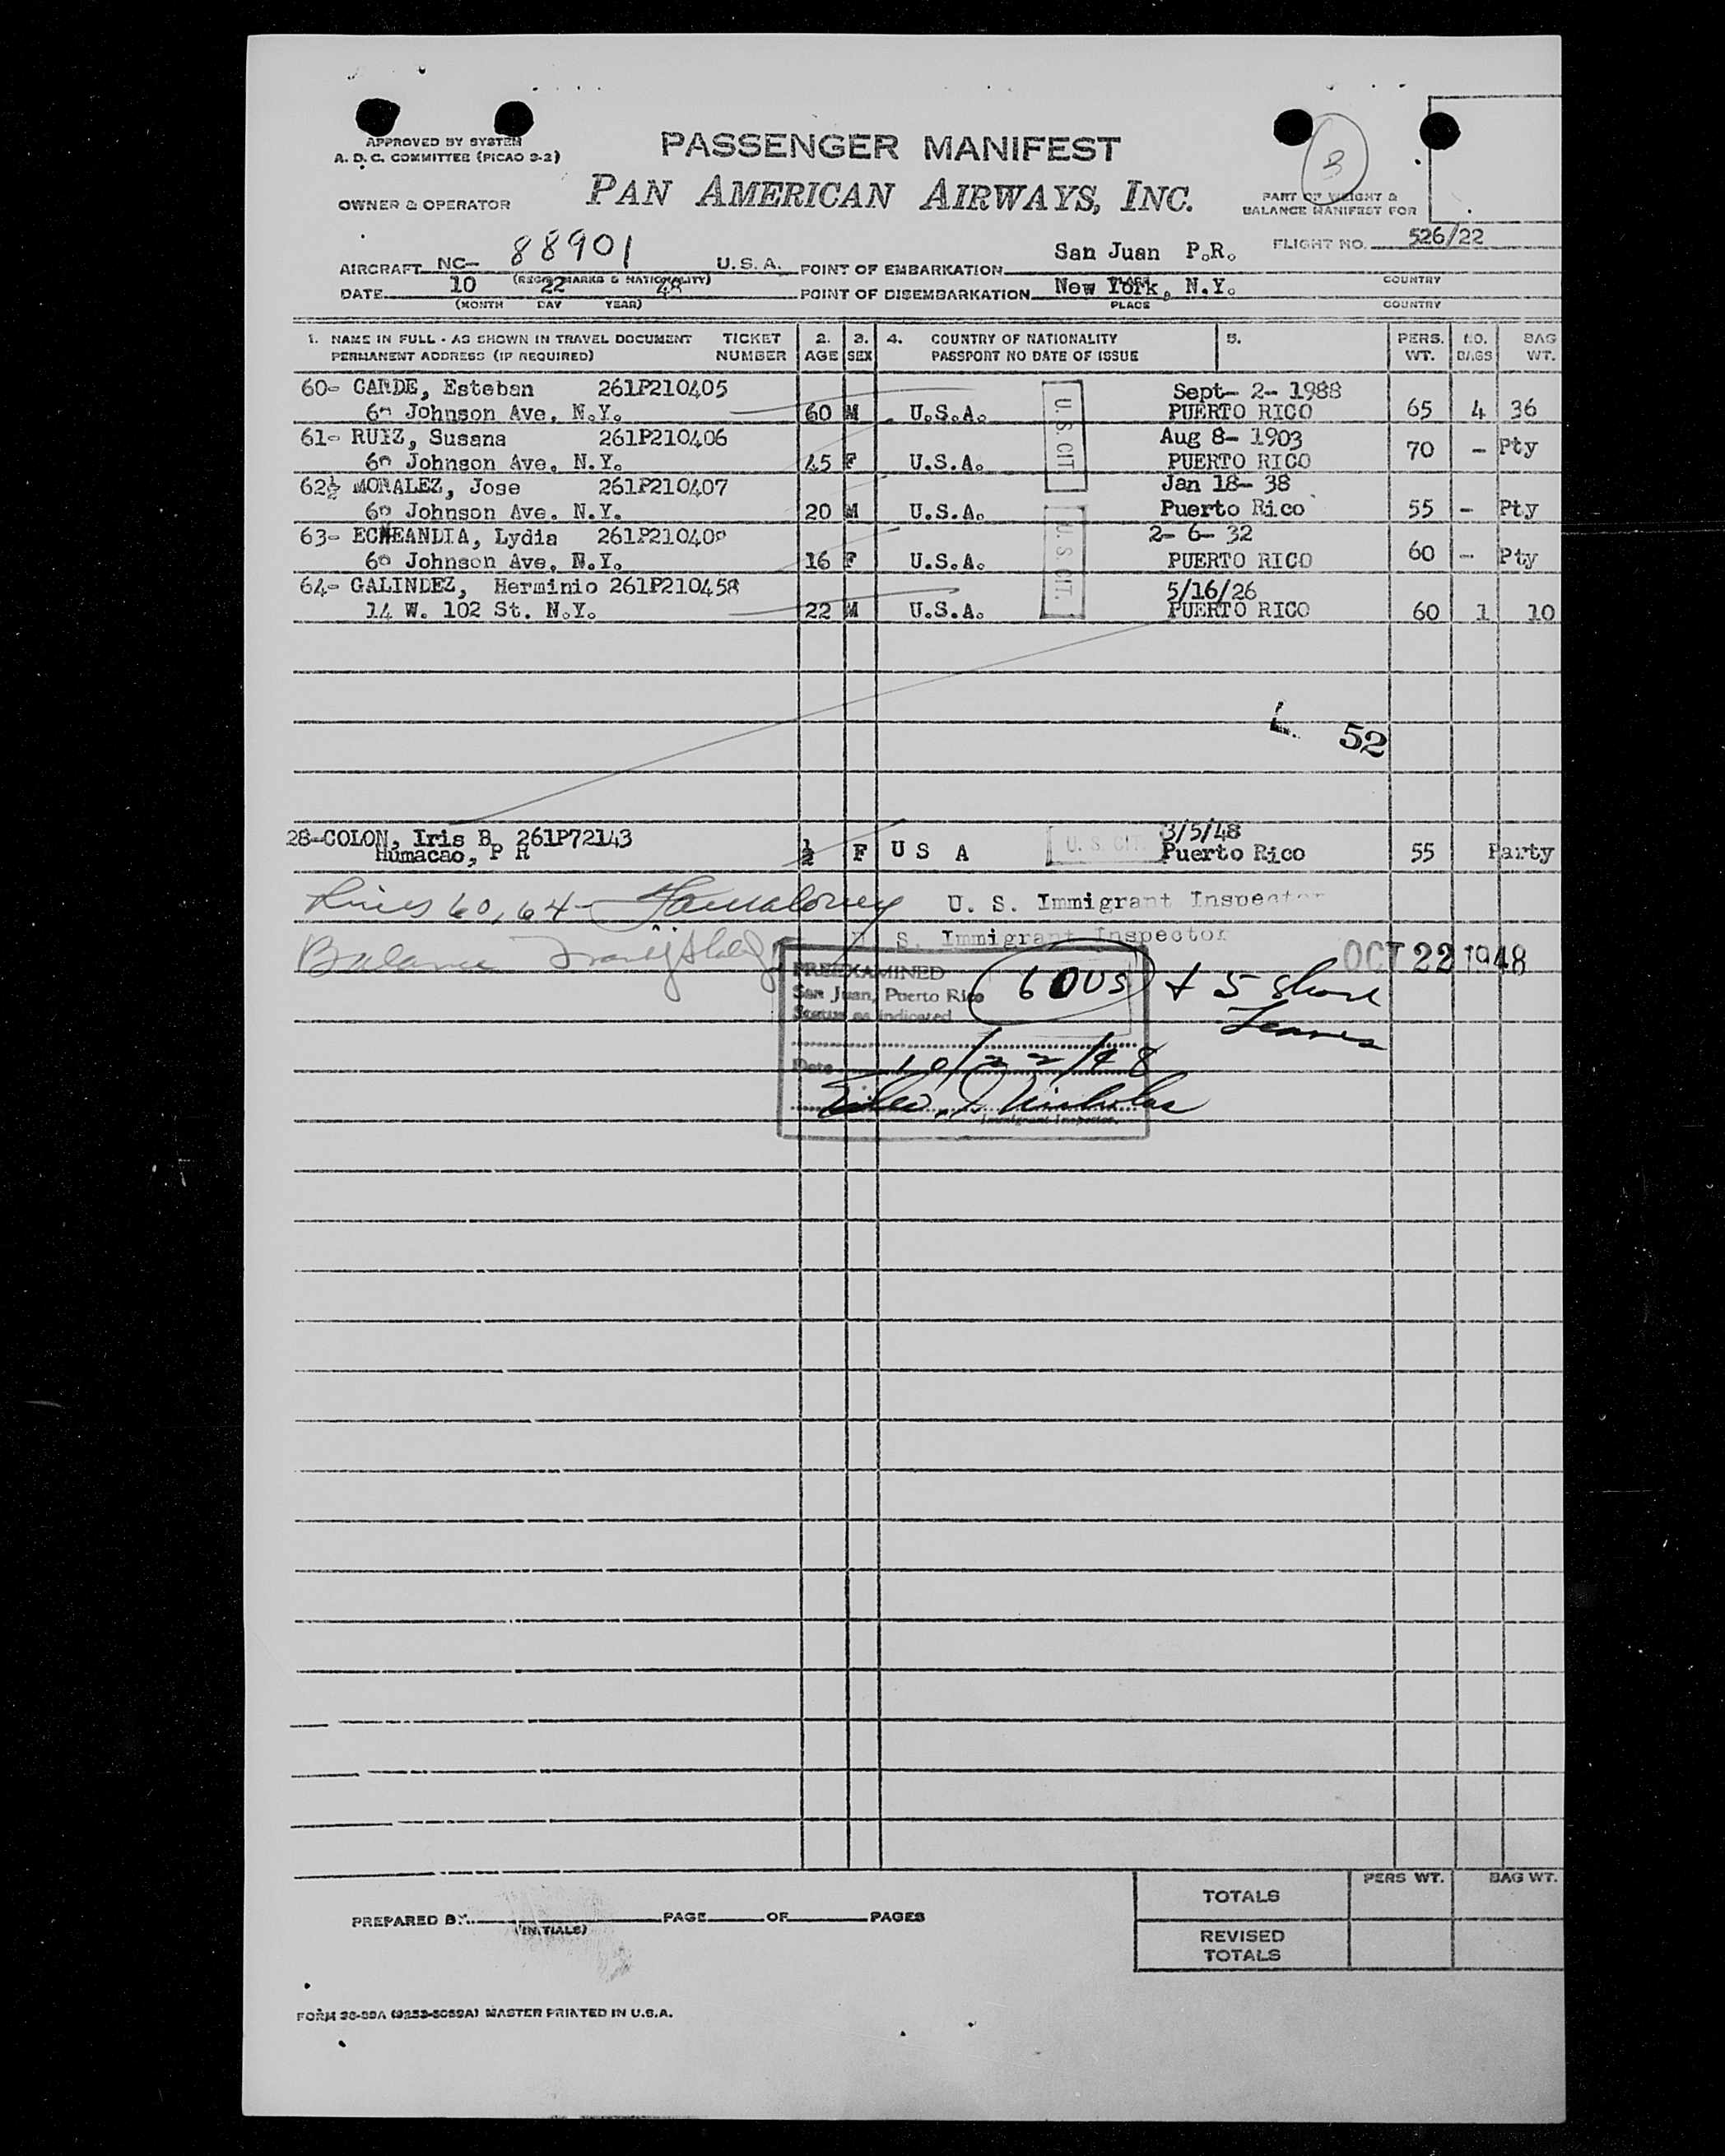 APPROVED BY SYSTEM
A. D. C. COMMITTEE (PICAO S-2)
PASSENGER MANIFEST
3
OWNER & OPERATOR
PAN AMERICAN AIRWAYS, INC.
PART OF WEIGHT &
BALANCE MANIFEST FOR
FLIGHT NO. 526/22
AIRCRAFT NC- 88901 U.S.A. POINT OF EMBARKATION San Juan P.R.
(REG. MARKS & NATIONALITY) PLACE COUNTRY
DATE 10 22 48 POINT OF DISEMBARKATION New York, N.Y.
(MONTH DAY YEAR) PLACE COUNTRY
1. NAME IN FULL - AS SHOWN IN TRAVEL DOCUMENT TICKET 2. 3. 4. COUNTRY OF NATIONALITY 5. PERS. NO. BAG
PERMANENT ADDRESS (IF REQUIRED) NUMBER AGE SEX PASSPORT NO DATE OF ISSUE WT. BAGS WT.
60- CARDE, Esteban 261P210405 Sept- 2- 1988
Johnson Ave. N.Y. 60 M U.S.A. U.S. CIT. PUERTO RICO 65 4 36
61- RUIZ, Susana 261P210406 Aug 8- 1903
Johnson Ave. N.Y. 45 F U.S.A. PUERTO RICO 70 - Pty
62½ MORALEZ, Jose 261P210407 Jan 18- 38
Johnson Ave. N.Y. 20 M U.S.A. Puerto Rico 55 - Pty
63- ECHEANDIA, Lydia 2- 6- 32
Johnson Ave. N.Y. 16 F U.S.A. U.S. CIT. PUERTO RICO 60 - Pty
64- GALINDEZ, Herminio 261P210458 5/16/26
14 W. 102 St. N.Y. 22 M U.S.A. PUERTO RICO 60 1 10
52
28-COLON, Iris B 261P72143 3/5/48
Humacao, P R ½ F U S A U.S. CIT. Puerto Rico 55 Party
Lines 60, 64 U. S. Immigrant Inspector
Balance U. S. Immigrant Inspector
OCT 22 1948
PREEXAMINED
San Juan, Puerto Rico
Status as indicated
60 US + 5 Short
Date 10/22/48
Immigrant Inspector.
PERS WT. BAG WT.
TOTALS
PREPARED BY PAGE OF PAGES
(INITIALS)
REVISED
TOTALS
MASTER PRINTED IN U.S.A.